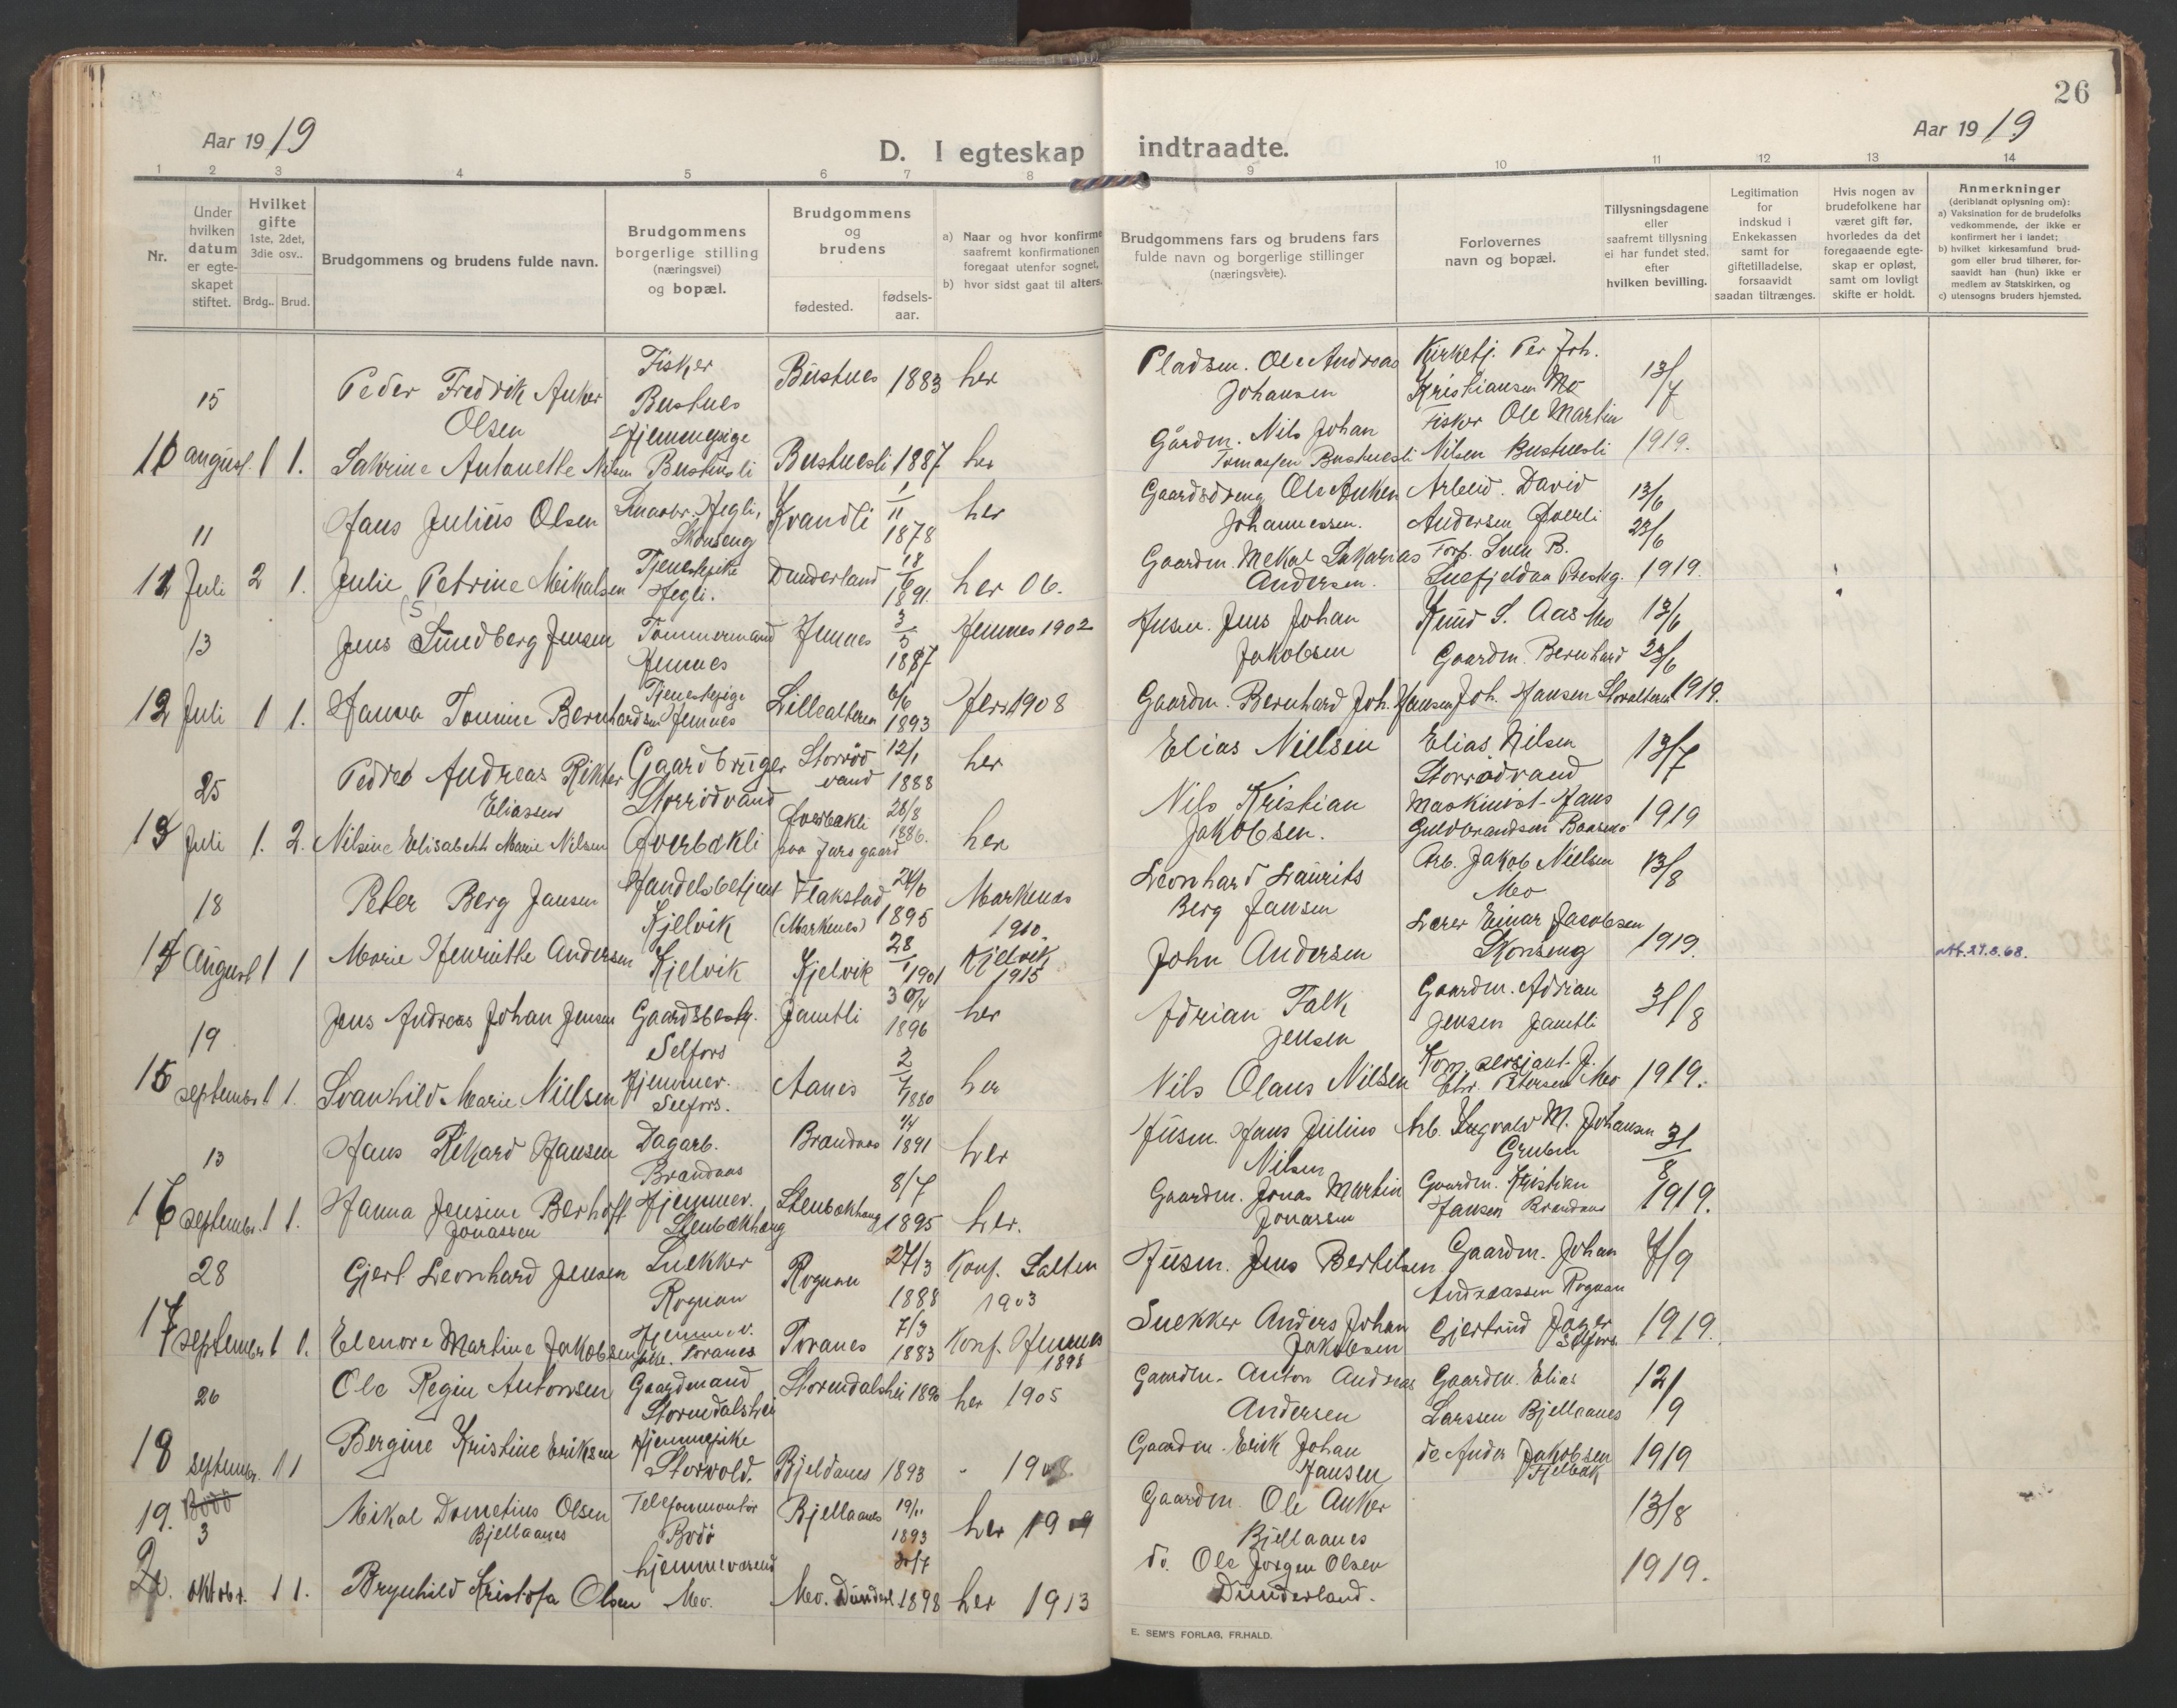 26
Aar 1919
Aar 1919
D. I egteskap indtraadte.
1 2 3 4 5 6 7 8 9 10 11 12 13 14
Nr.
Under hvilken datum er egte-skapet stiftet.
Hvilket gifte
1ste, 2det, 3die osv..
Brdg.. Brud.
Brudgommens og brudens fulde navn.
Brudgommens borgerlige stilling (næringsvei) og bopæl.
Brudgommens og brudens
fødested.
fødsels-aar.
a) Naar og hvor konfirme
saafremt konfirmationen
foregaat utenfor sognet,
b) hvor sidst gaat til alters.
Brudgommens fars og brudens fars
fulde navn og borgerlige stillinger
(næringsveie).
Forlovernes
navn og bopæl.
Tillysningsdagene
eller
saafremt tillysning
ei har fundet sted,
efter
hvilken bevilling.
Legitimation
for
indskud i
Enkekassen
samt for
giftetilladelse,
forsaavidt
saadan tiltrænges.
Hvis nogen av
brudefolkene har
været gift før,
hvorledes da det
foregaaende egte-
skap er opløst,
samt om lovligt
skifte er holdt.
Anmerkninger
(deriblandt oplysning om):
a) Vaksination for de brudefolks
vedkommende, der ikke er
konfirmert her i landet;
b) hvilket kirkesamfund brud-
gom eller brud tilhører, for-
saavidt han (hun) ikke er
medlem av Statskirken, og
c) utensogns bruders hjemsted.
15 Peder Fredrik Anker Olsen Fisker Bustnes Bustnes 1883 her Pladsm. Ole Andreas Johansen Kirketj. Per Joh. Kristiansen Mo 13/7
august. 1 1. Sakrine Antonette Nilsen Hjemmepige Bustnesli Bustnesli 1887 her Gårdm. Nils Johan Tomassen Bustnesli Fisker Ole Martin Nilsen Bustnesli 1919.
11 Hans Julius Olsen Hegli, Skonseng Kvandli 1/11 1878 her Gaardsdreng Ole Anken Johannessen. Arbeid. David Andersen 13/6 23/6
11 Juli 2 1. Julie Petrine Mikalsen Tjenestepike Hegli. Dunderland 18/6 1891. her 06. Gaardm. Mekal Sakarias Andersen. 1919.
13 Jens Sundberg Jensen Tømmermand Hemnes Hemnes 3/5 1887 Hemnes 1902 Husm. Jens Johan Jakobsen Knud S. Aas Mo 13/6
12 Juli 1 1. Hanna Tomine Bernhardsen Tjenestepige Hemnes Lillealteren 6/6 1893 Her 1908 Gaardm. Bernhard Joh. Hansen Gaardm. Bernhard Joh. Hansen Storalteren 23/6 1919.
25 Andreas Rikter Eliassen Gaardbruger Storrödvand Storrödvand 12/1 1888 her Elias Nielsen Elias Nilsen Storrödvand 13/7
13 Juli 1. 2. Nilsine Elisabeth Marie Nilsen 28/8 1886. her Nils Kristian Jakobsen. Maskinist Hans Guldbrandsen 1919
18 Peter Berg Jansen Handelsbetjent Kjelvik Flakstad 24/6 1895 1910. Leonhard Laurits Berg Jansen Arb. Jakob Nielsen Mo 13/8
14 August 1 1 Marie Henriette Andersen Kjelvik Kjelvik 28/1 1901 Kjelvik 1915 John Andersen Lærer Einar Jacobsen Skonseng 1919.
19 Jens Andreas Johan Jensen Gaardsbest. Selfors Jamtli 30/4 1896 her Adrian Falk Jensen Gaardm. Adrian Jensen Jamtli 31/8
15 september 1 1. Svanhild Marie Nielsen Hjemmev. Selfors. Aanes 2/7 1880 her Nils Olaus Nilsen Kom. sersjant Petersen Mo 1919.
13 Hans Rikard Hansen Dagarb. Brandaas Brandaas 1/4 1891 her Husm. Hans Julius Nilsen Arb. Ingvald M. Johansen Gruben 31/8
16 septembr. 1 1. Hanna Jensine Berhoft Jonassen Hjemmev. Stenbækhaug Stenbækhaug 8/7 1895 her. Gaardm. Jonas Martin Jonassen Gaardm. Kristian Hansen Brandaas 1919.
28 Gjert Leonhard Jensen Snekker Rognan Rognan 27/3 1888 Konf. Salten 1903 Husm. Jens Bertelsen Gaardm. Johan Andreassen Rognan 7/9
17 september 1 1. Elenore Martine Jakobsen Hjemmev. Toranes Toranes 7/3 1883 Konf. Hemnes 1898 Snekker Anders Johan Jakobsen Gjertrud Jæger Selfors 1919.
26 Ole Regin Antonsen Gaardmand Stormdalshei Stormdalshei 1890 her 1905 Gaardm. Anton Andreas Andersen Gaardm. Elias Larssen Bjellaanes 12/9
18 septembr. 1 1 Bergine Kristine Eriksen Hjemmepike Storvold. Bjeldanes 1893 " 1908. Gaardm. Erik Johan Hansen do Ander Jakobsen 1919
19. Bodö 3 Mikal Dometius Olsen Bjellaanes Telefonmontör Bodö Bjellaanes 19/11 1893 her 1909 Gaardm. Ole Anker Bjellaanes 13/8
oktobr. 1 1. Brynhild Kristofa Olsen hjemmeværend Mo. Mo. Dunderl. 20/7 1898 her 1913 do. Ole Jörgen Olsen Dunderland. 1919.
E. SEM'S FORLAG, FR.HALD.